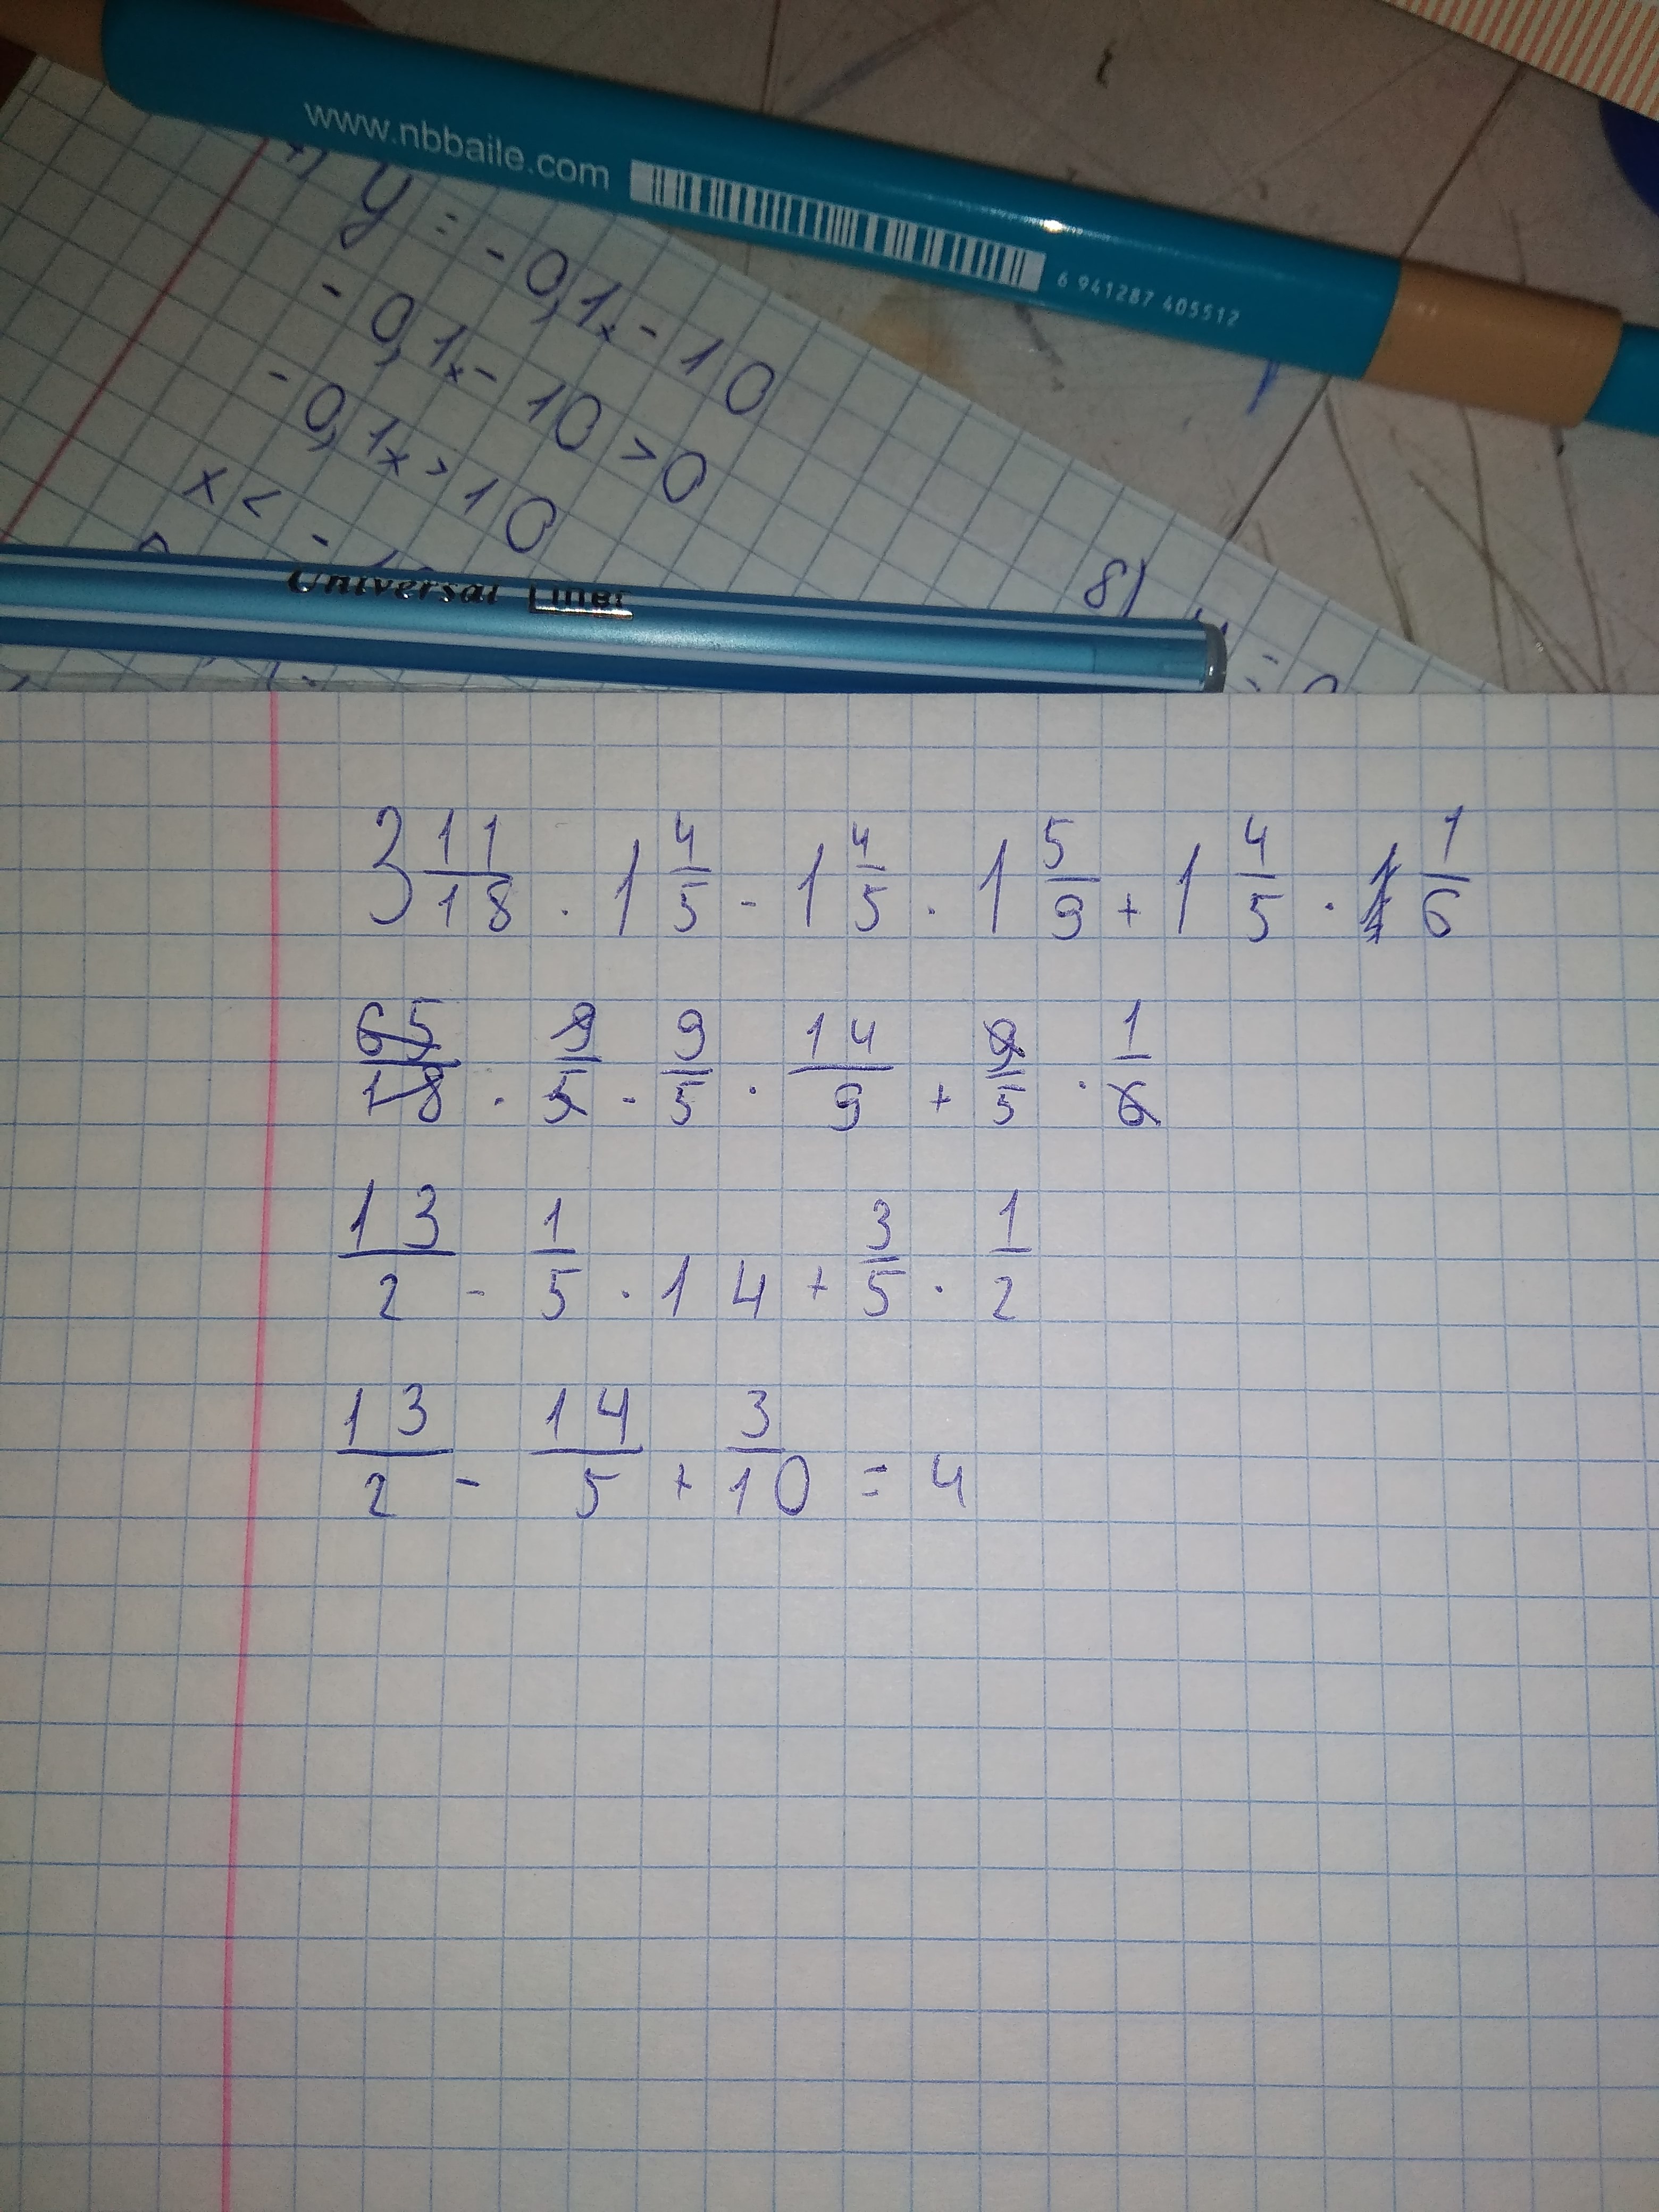 www.nbbaile.com
6 941287 405512
y = - 0,1x - 10
- 0,1x - 10 > 0
- 0,1x > 10
x < - 1
Universal Liner
8)
3 11/18 · 1 4/5 - 1 4/5 · 1 5/9 + 1 4/5 · 1/6
65/18 · 9/5 - 9/5 · 14/9 + 9/5 · 1/6
13/2 - 1/5 · 14 + 3/5 · 1/2
13/2 - 14/5 + 3/10 = 4